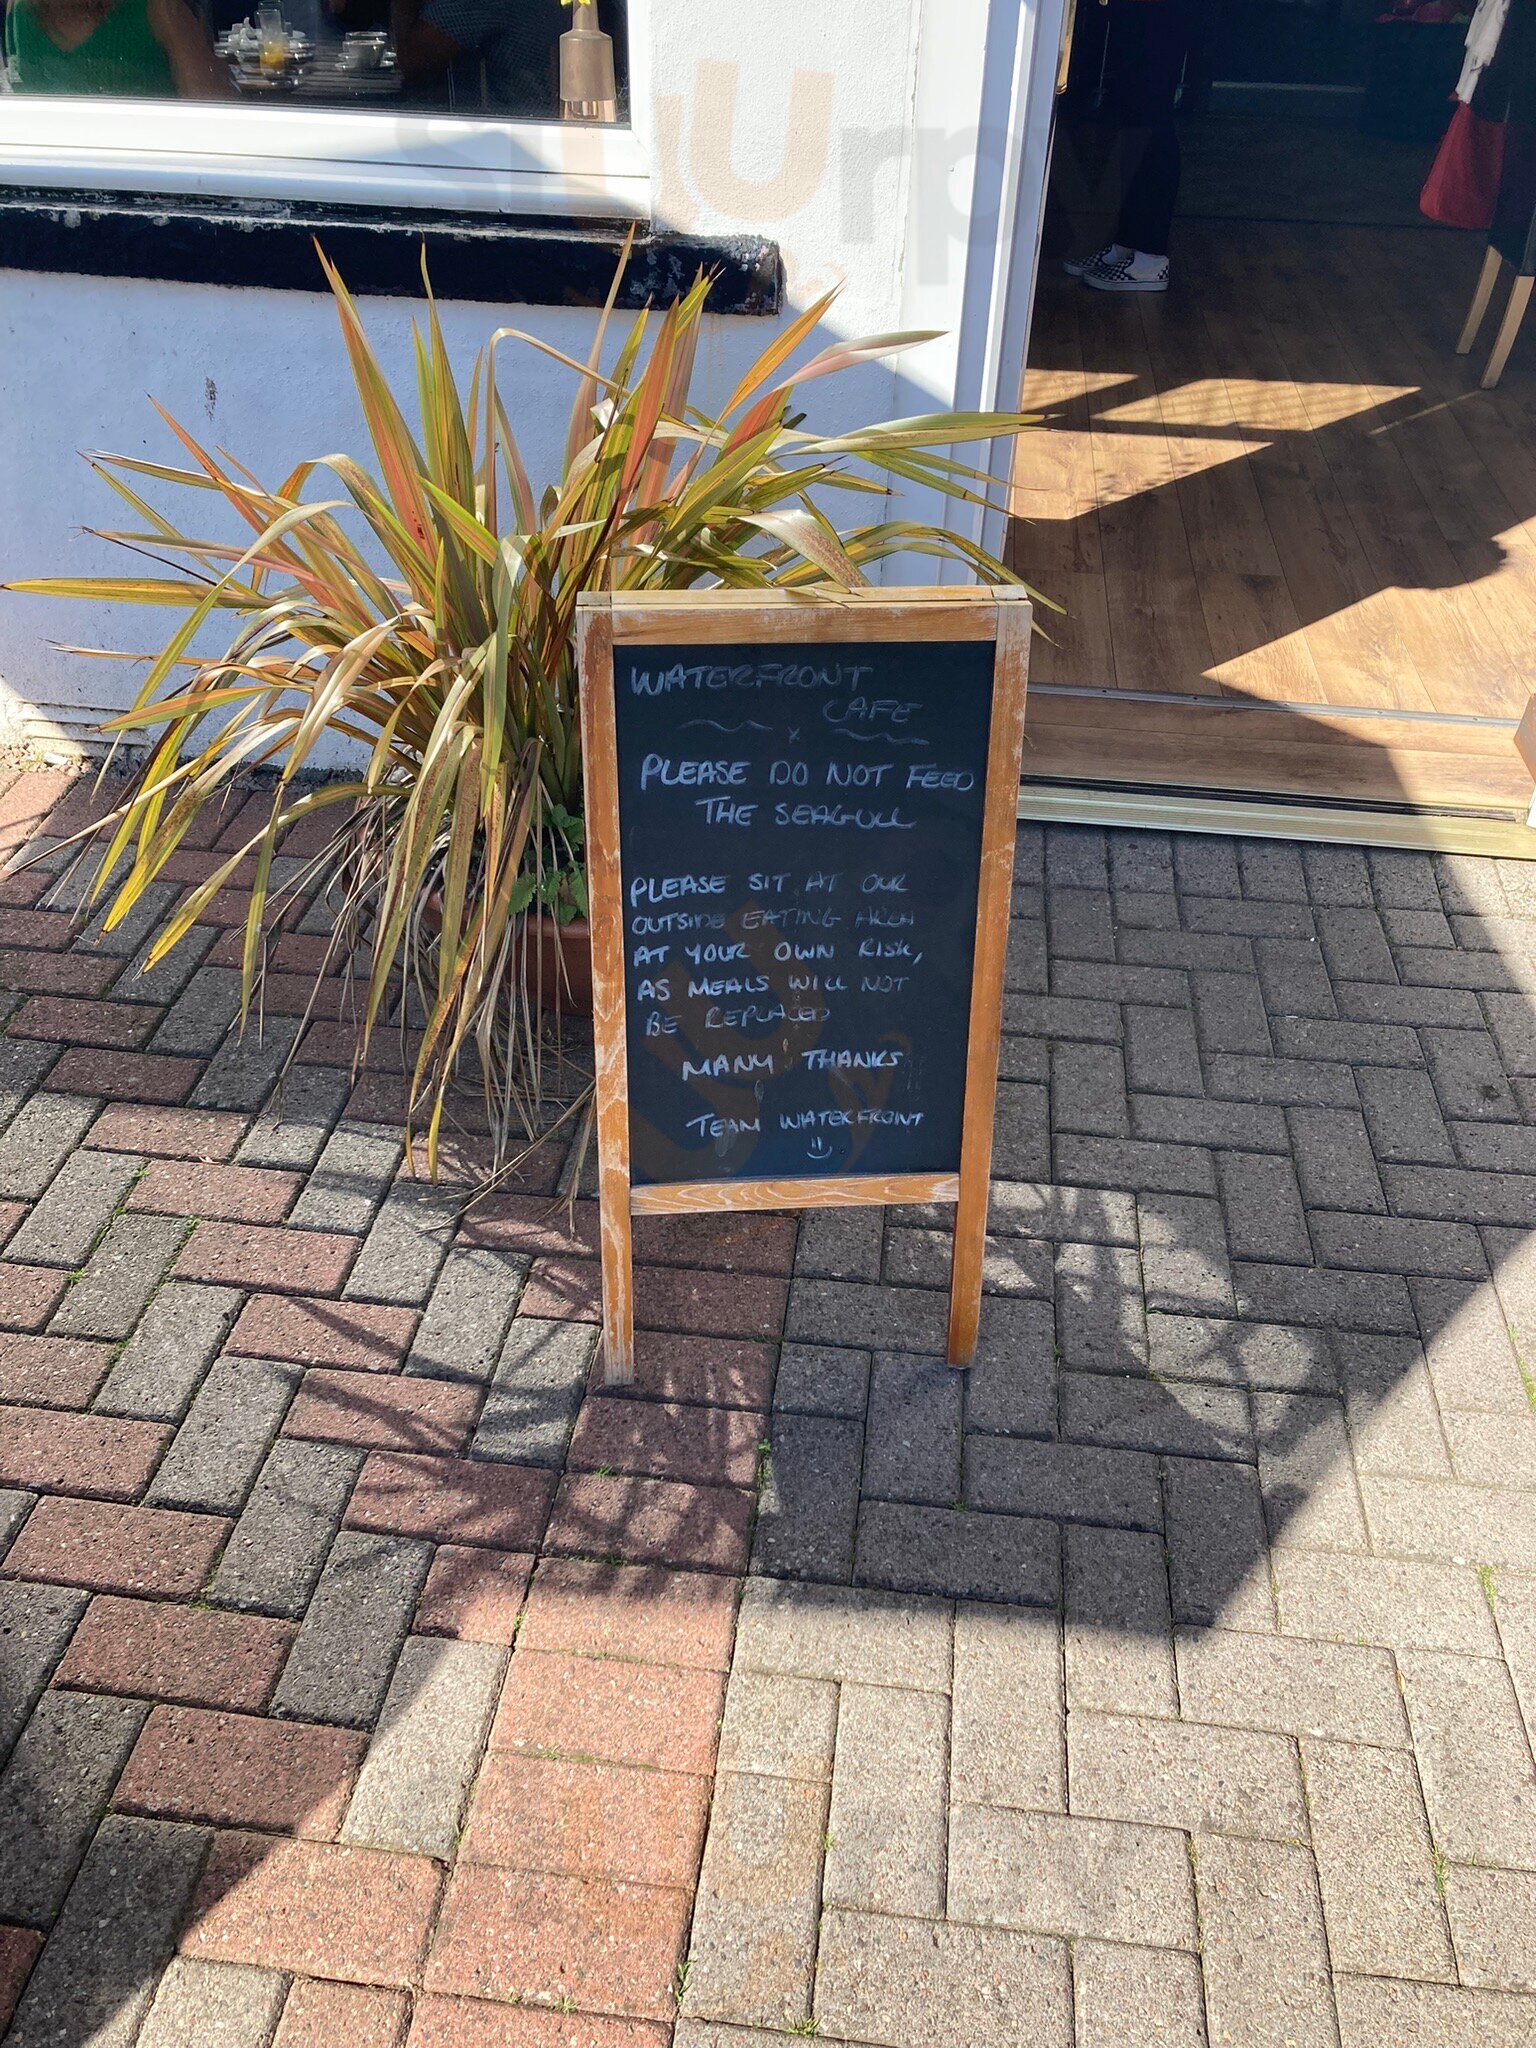 sluurpy
WATERFRONT
CAFE
x
PLEASE DO NOT FEED
THE SEAGULL
PLEASE SIT AT OUR
OUTSIDE EATING AREA
AT YOUR OWN RISK,
AS MEALS WILL NOT
BE REPLACED
MANY THANKS
TEAM WATERFRONT